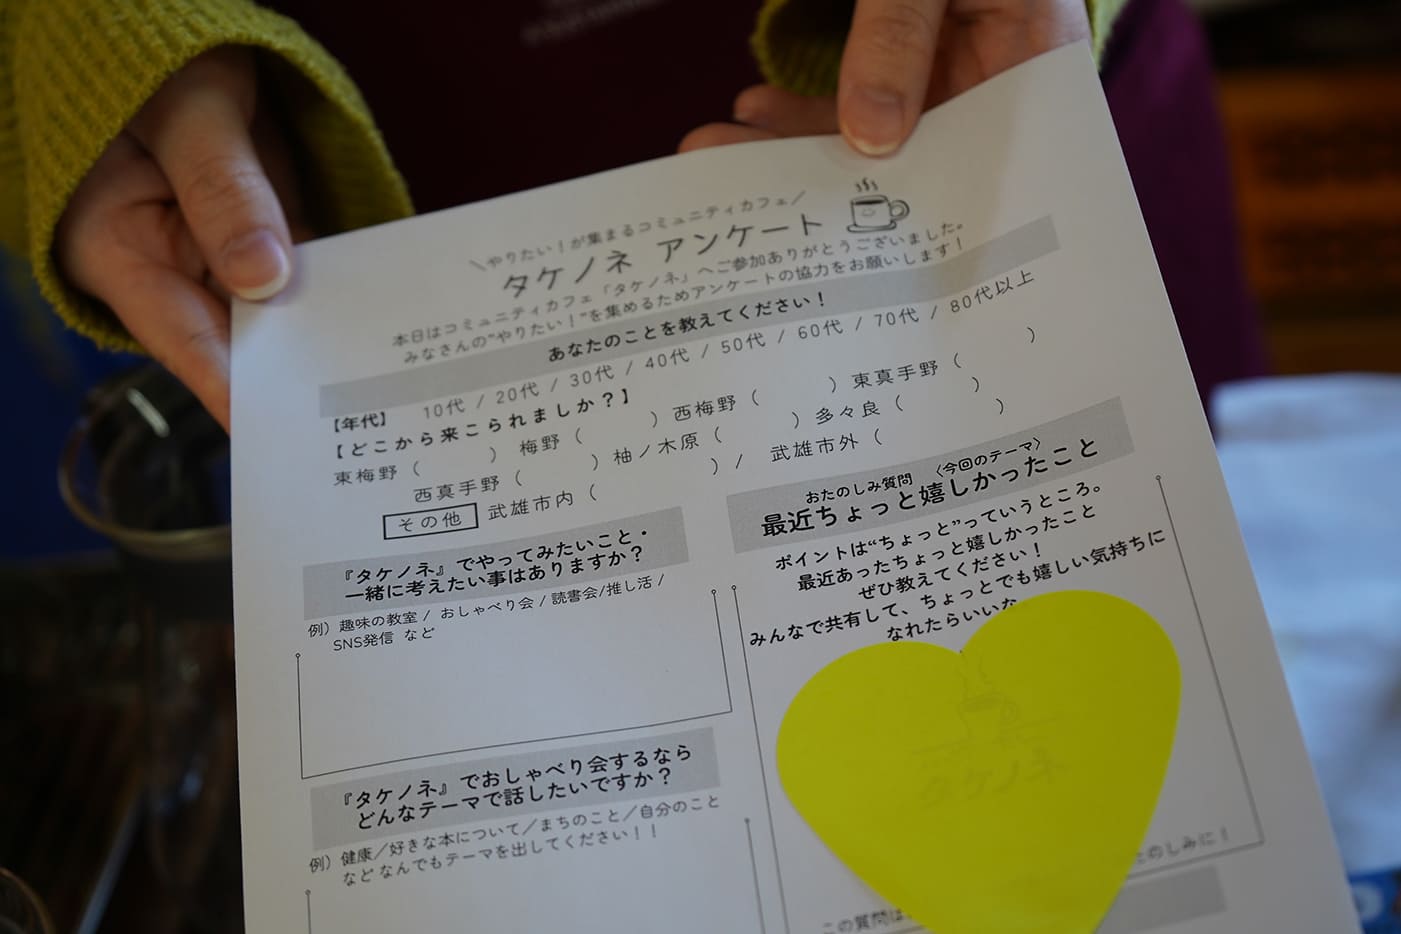 ＼やりたい！が集まるコミュニティカフェ／
タケノネ アンケート
本日はコミュニティカフェ「タケノネ」へご参加ありがとうございました。
みなさんの“やりたい！”を集めるためアンケートの協力をお願いします！
あなたのことを教えてください！
【年代】 10代 / 20代 / 30代 / 40代 / 50代 / 60代 / 70代 / 80代以上
【どこから来こられましか？】
東梅野（ ） 梅野（ ）西梅野（ ）東真手野（ ）
西真手野（ ）柚ノ木原（ ）多々良（ ）
その他 武雄市内（ ）/ 武雄市外（ ）
『タケノネ』でやってみたいこと・
一緒に考えたい事はありますか？
例）趣味の教室 / おしゃべり会 / 読書会/推し活 /
SNS発信 など
『タケノネ』でおしゃべり会するなら
どんなテーマで話したいですか？
例）健康／好きな本について／まちのこと／自分のこと
など なんでもテーマを出してください！！
おたのしみ質問 〈今回のテーマ〉
最近ちょっと嬉しかったこと
ポイントは“ちょっと”っていうところ。
最近あったちょっと嬉しかったこと
ぜひ教えてください！
みんなで共有して、ちょっとでも嬉しい気持ちに
なれたらいいな
タケノネ
たのしみに！
この質問は